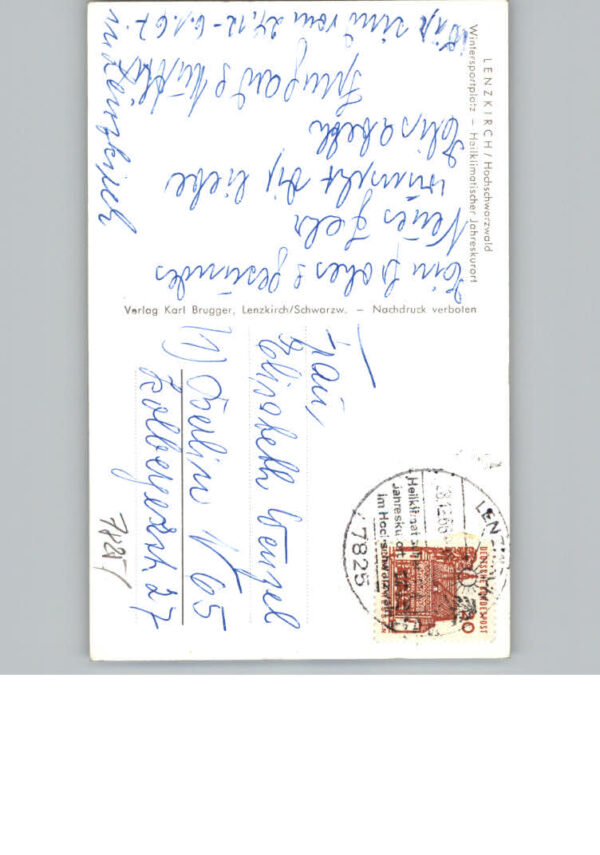 LENZKIRCH / Hochschwarzwald
Wintersportplatz – Heilklimatischer Jahreskurort
Ein frohes & gesundes
Neues Jahr
wünscht Dir liebe
Elisabeth
sind vom 27.12 – 6.1.67.
in Lenzkirch
Verlag Karl Brugger, Lenzkirch/Schwarzw. – Nachdruck verboten
Frau
Elisabeth Wenzel
1) Berlin N 65
Kolbergerstr. 27
LENZKIRCH
28.12.66
Heilklimatischer
Jahreskurort
im Hochschwarzwald
7825
DEUTSCHE BUNDESPOST
30
7825/